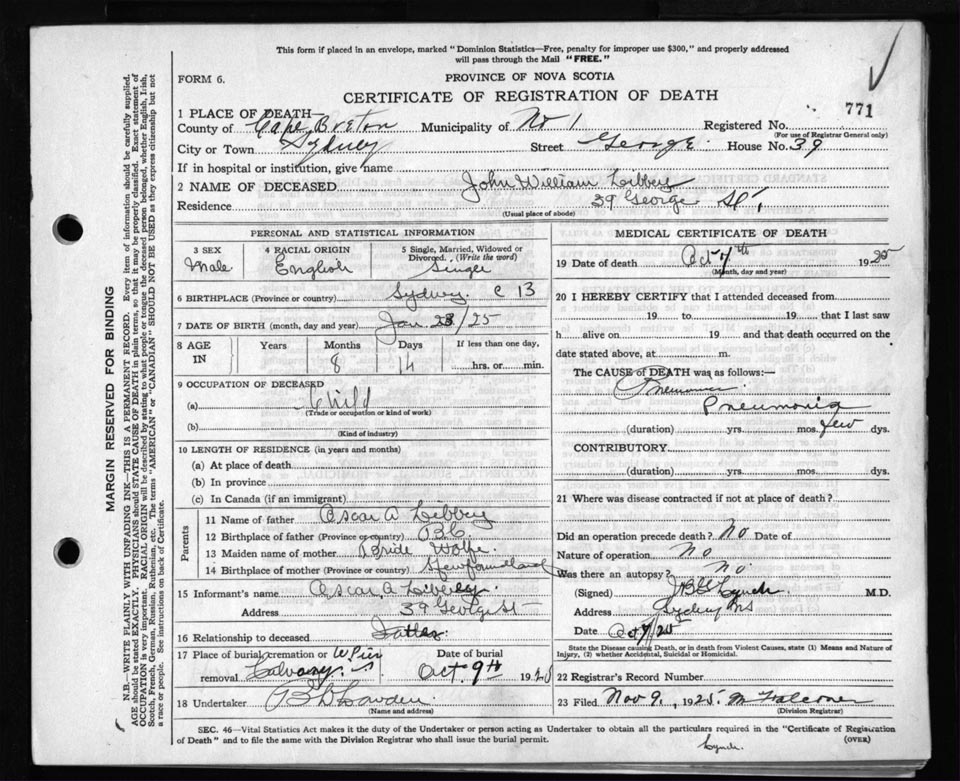 This form if placed in an envelope, marked "Dominion Statistics—Free, penalty for improper use $300," and properly addressed
will pass through the Mail "FREE."
FORM 6.
PROVINCE OF NOVA SCOTIA
CERTIFICATE OF REGISTRATION OF DEATH
771
1 PLACE OF DEATH
County of Cape Breton Municipality of No 1 Registered No.
(For use of Registrar General only)
City or Town Sydney Street George House No. 39
If in hospital or institution, give name
2 NAME OF DECEASED John William Libbey
Residence 39 George St,
(Usual place of abode)
PERSONAL AND STATISTICAL INFORMATION
3 SEX 4 RACIAL ORIGIN 5 Single, Married, Widowed or Divorced. (Write the word)
Male English Single
6 BIRTHPLACE (Province or country) Sydney. C 13
7 DATE OF BIRTH (month, day and year) Jan. 23/25
8 AGE IN Years Months Days If less than one day,
8 14 hrs. or min.
9 OCCUPATION OF DECEASED
(a) Child
(Trade or occupation or kind of work)
(b)
(Kind of industry)
10 LENGTH OF RESIDENCE (in years and months)
(a) At place of death
(b) In province
(c) In Canada (if an immigrant)
Parents
11 Name of father Oscar A Libbey
12 Birthplace of father (Province or country) B.C.
13 Maiden name of mother Bride Wolfe.
14 Birthplace of mother (Province or country) Newfoundland
15 Informant's name Oscar A. Libbey
Address 39 George St
16 Relationship to deceased Father.
17 Place of burial, cremation or removal W. Pier Calvary Date of burial Oct 9th 1925
18 Undertaker
(Name and address)
MEDICAL CERTIFICATE OF DEATH
19 Date of death Oct 7th 1925
(Month, day and year)
20 I HEREBY CERTIFY that I attended deceased from
19 to 19 that I last saw
h alive on 19 and that death occurred on the
date stated above, at m.
The CAUSE of DEATH was as follows:—
Pneumonia
Pneumonia
(duration) yrs. mos. few dys.
CONTRIBUTORY
(duration) yrs. mos. dys.
21 Where was disease contracted if not at place of death?
Did an operation precede death? No Date of
Nature of operation No
Was there an autopsy? No
(Signed) Lynch M.D.
Address Sydney NS
Date Oct 7/25
State the Disease causing Death, or in death from Violent Causes, state (1) Means and Nature of
Injury, (2) whether Accidental, Suicidal or Homicidal.
22 Registrar's Record Number
23 Filed Nov 9, 1925. M Falcone
(Division Registrar)
SEC. 46—Vital Statistics Act makes it the duty of the Undertaker or person acting as Undertaker to obtain all the particulars required in the "Certificate of Registration
of Death" and to file the same with the Division Registrar who shall issue the burial permit.
(OVER)
Lynch.
MARGIN RESERVED FOR BINDING
N.B.—WRITE PLAINLY WITH UNFADING INK—THIS IS A PERMANENT RECORD. Every item of information should be carefully supplied.
AGE should be stated EXACTLY. PHYSICIANS should STATE CAUSE OF DEATH in plain terms, so that it may be properly classified. Exact statement of
OCCUPATION is very important. RACIAL ORIGIN will be described by stating to what people or tongue the deceased person belonged, whether English, Irish,
Scotch, French, German, Russian, Ruthenian, etc. The terms "AMERICAN" or "CANADIAN" SHOULD NOT BE USED as they express citizenship but not
a race or people. See instructions on back of Certificate.